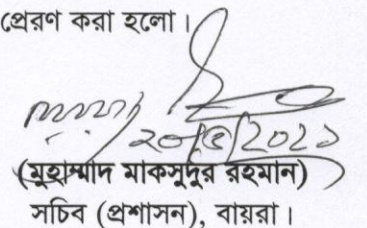 প্রেরণ করা হলো।
২০/৫/2021
(মুহাম্মাদ মাকসুদুর রহমান)
সচিব (প্রশাসন), বায়রা।